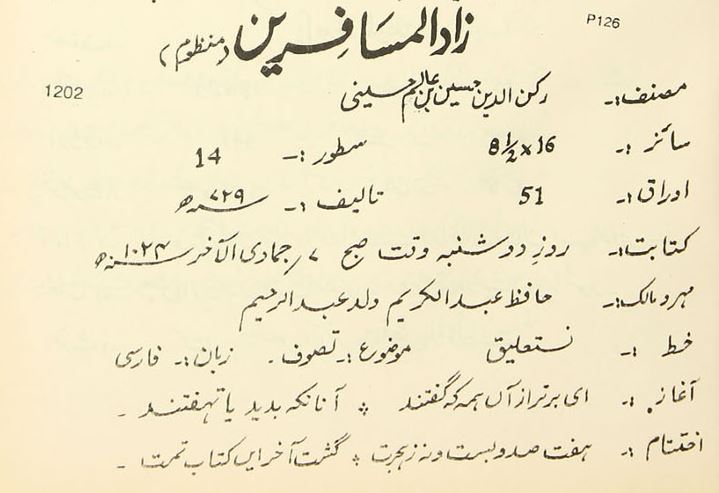 P126
زاد المسافرین (منظوم)
1202
مصنف:۔ رکن الدین حسین بن عالم حسینی
سائز :۔ 8½x16 سطور :۔ 14
اوراق:۔ 51 تالیف :۔ ۷۲۹ھ
کتابت:۔ روز دوشنبہ وقت صبح ۷/جمادی الآخر ۱۰۲۴ھ
مہر و مالک:۔ حافظ عبدالکریم ولد عبدالرحیم
خط :۔ نستعلیق موضوع :۔ تصوف ۔ زبان :۔ فارسی
آغاز :۔ ای برتر از آں ہمہ کہ گفتند ؞ آنانکہ بدید یا نہفتند ۔
اختتام :۔ ہفت صد و بست و نہ ز ہجرت ؞ گشت آخر ایں کتاب تمت ۔